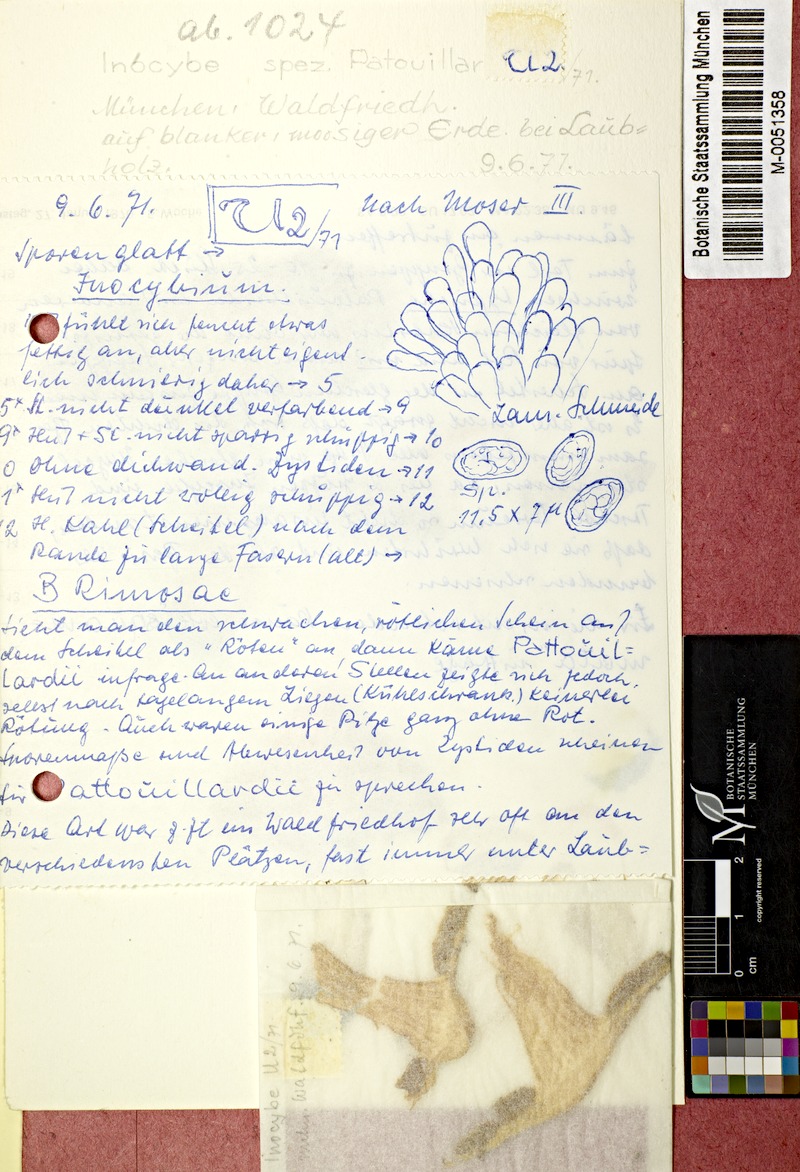 ab. 1024
Inócybe spez. Patouillar U2/71.
München, Waldfriedh.
auf blanker, moosiger Erde. bei Laub=
holz. 9.6.71.
9.6.71. U2/71 nach Moser III
Sporen glatt →
Inocybium.
fühlt sich feucht etwas
fettig an, aber nicht eigent-
lich schmierig daher → 5
5* St. nicht dunkel verfärbend → 9
9* Hut + St. nicht sparrig schuppig → 10
0 ohne dickwand. Zystiden → 11
1* Hut nicht völlig schuppig → 12
2 H. Kahl (Scheitel) nach dem
Rande zu lange Fasern (alt) →
Lam.-Schneide
Spo.
11,5 x 7 µ
B Rimosae
Sieht man den schwachen, rötlichen Schein auf
dem Scheitel als "Röten" an dann käme Pattouil=
lardii infrage. An anderen Stellen zeigte sich jedoch,
selbst nach tagelangem Liegen (Kühlschrank) keinerlei
Rötung. Auch waren einige Pilze ganz ohne Rot.
Sporenmaße und Abwesenheit von Zystiden scheinen
für Pattouillardii zu sprechen.
Diese Art war z. Zt im Waldfriedhof sehr oft an den
verschiedensten Plätzen, fast immer unter Laub=
Inocybe U2/71
Waldfrdhf. 9.6.71.
Botanische Staatssammlung München
M-0051358
BOTANISCHE
STAATSSAMMLUNG
MÜNCHEN
copyright reserved
0 1 2
cm